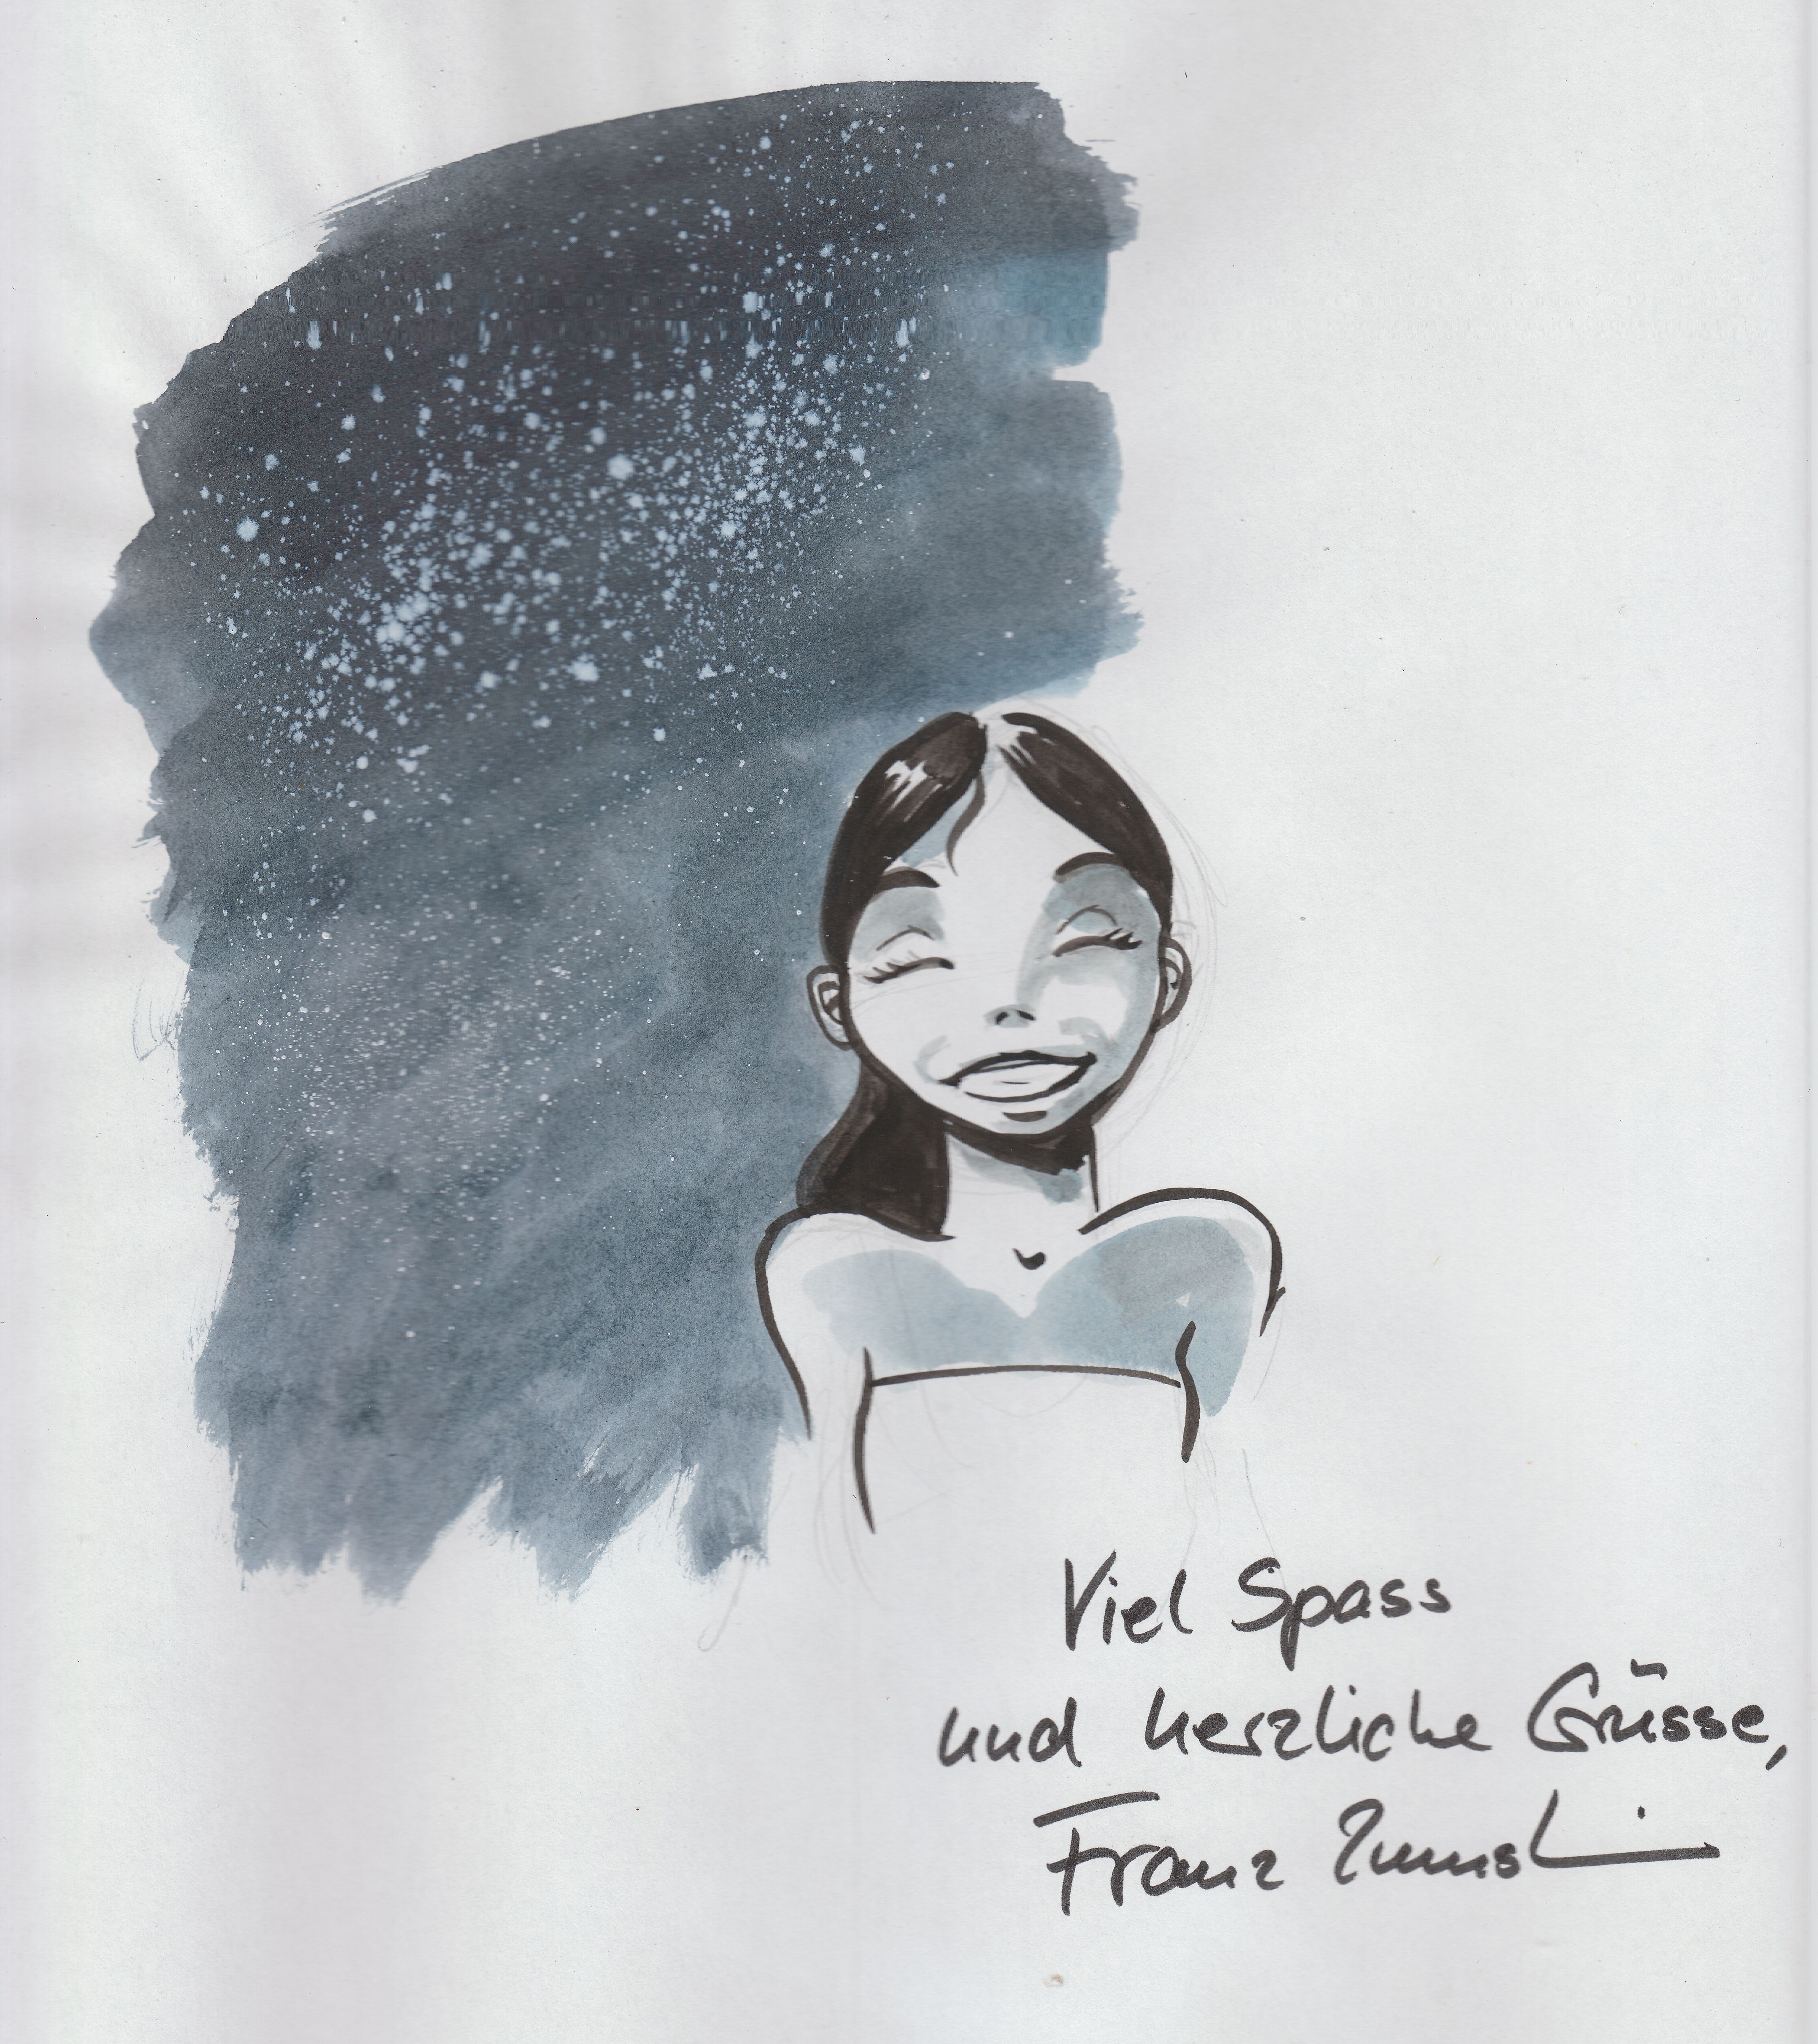 Viel Spass
und herzliche Grüsse,
Franz